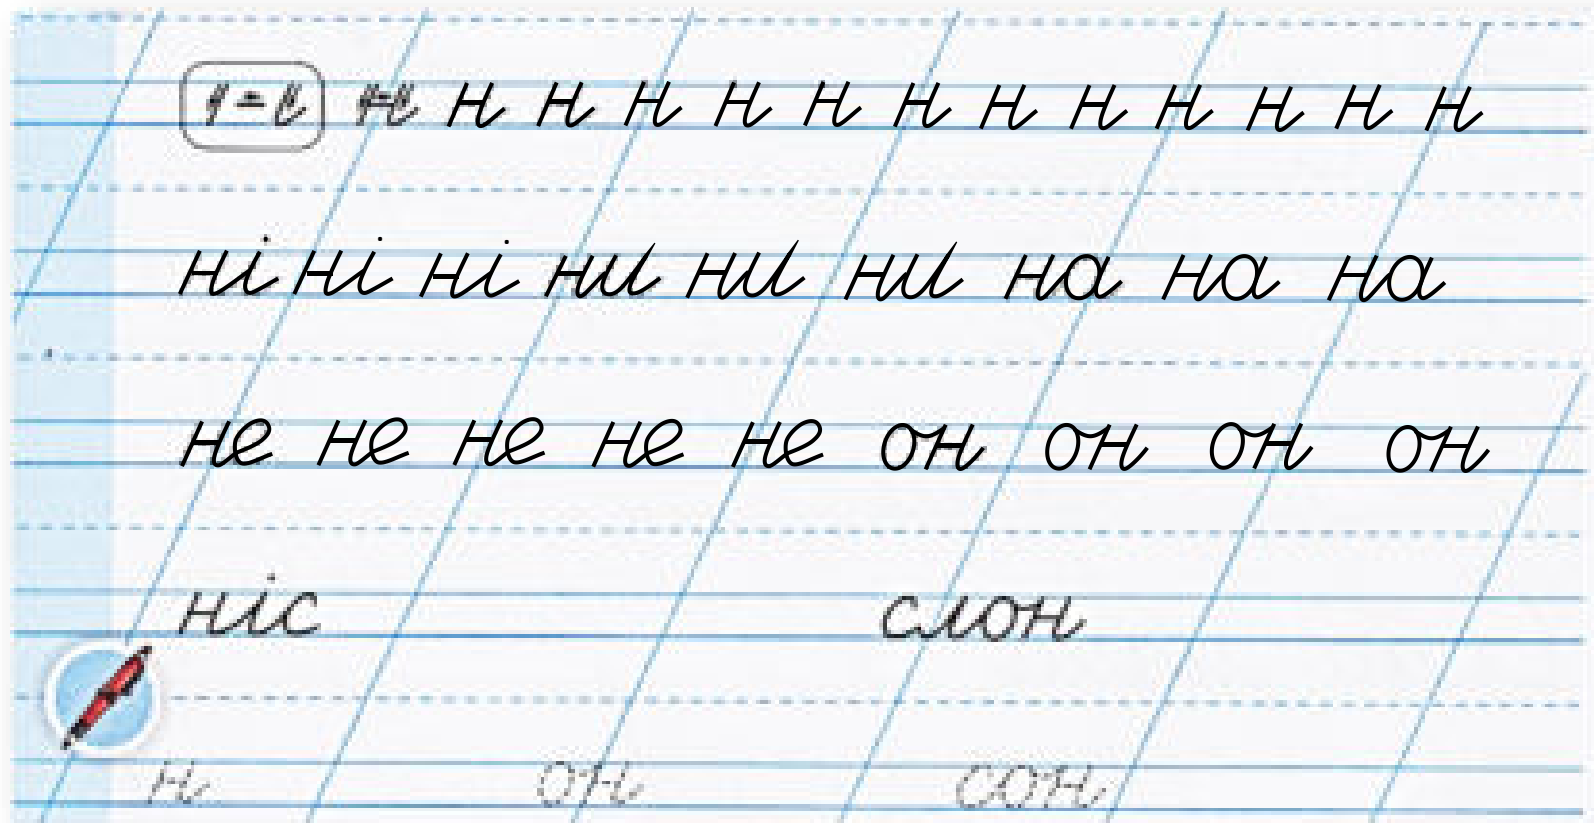 н н н н н н н н н н н н н
ні ні ні ни ни ни на на на
не не не не не он он он он
ніс слон
н он сон